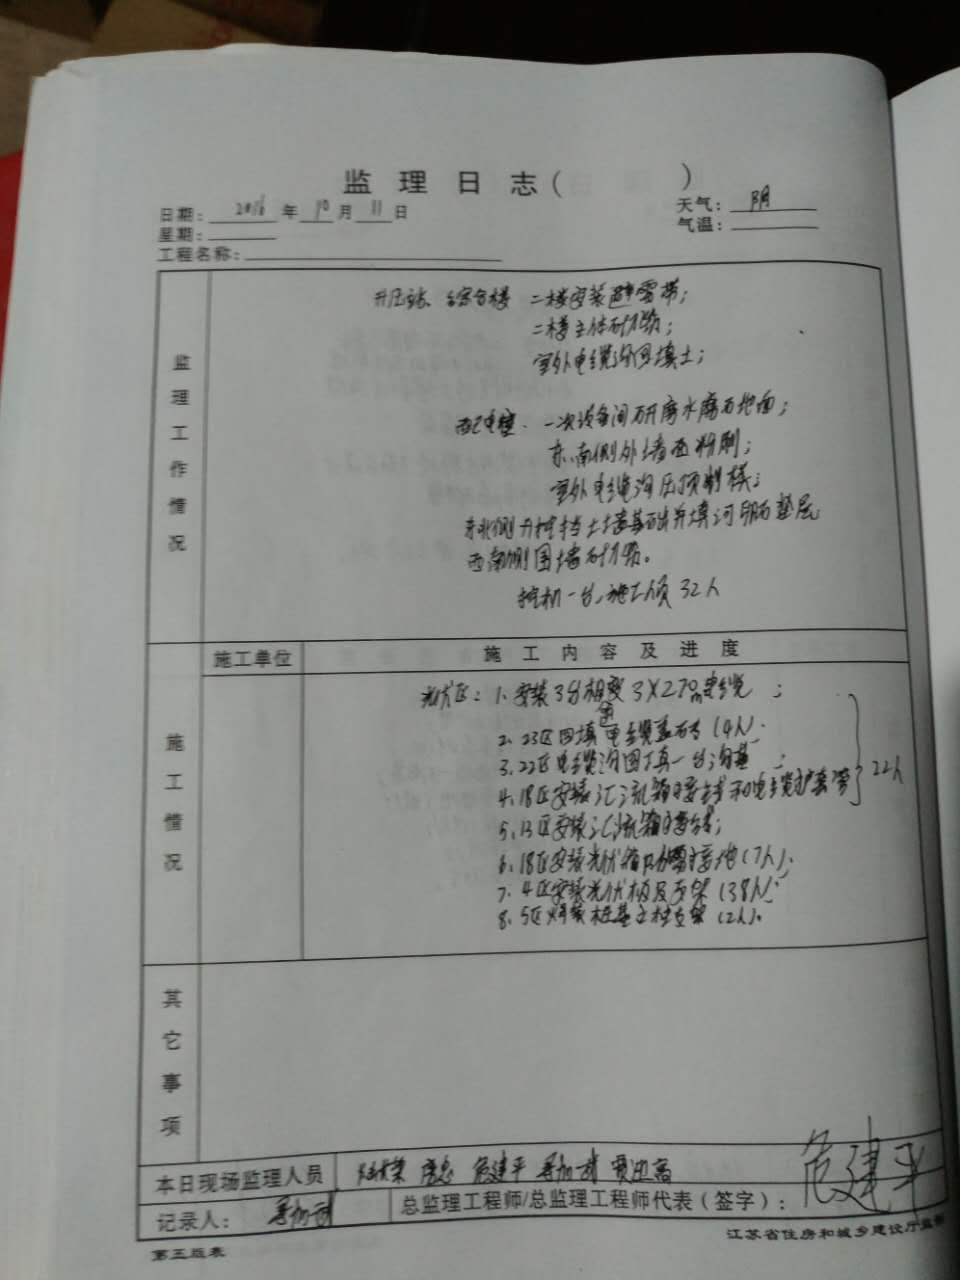 监理日志( )
日期: 2016 年 10 月 11 日
天气: 阴
星期:
气温:
工程名称:
监理工作情况
升压站、综合楼 二楼安装避雷带;
二楼主体砌筑;
室外电缆沟回填土;
配电室. 一次设备间研磨水磨石地面;
东、南侧外墙面粉刷;
室外电缆沟压顶 模;
东北侧开挖挡土墙基础并填河卵石垫层
西南侧围墙砌筑。
挖机一台、施工人员 32人
施工单位
施工内容及进度
施工情况
光伏区: 1、安装3分 3×270 电缆;
2、23区回填电缆盖砖(4人)
3、22区电缆沟回填一台沟基;
4、18区安装汇流箱接线和电缆护套管
22人
5、13区安装汇流箱接线;
6、18区安装光伏 接地(7人);
7、4区安装光伏板及支架(38人);
8、5区焊装桩基立柱支架(2人)。
其它事项
本日现场监理人员 危建平 贾迎高
记录人:
总监理工程师/总监理工程师代表(签字): 危建平
第五版表
江苏省住房和城乡建设厅监制